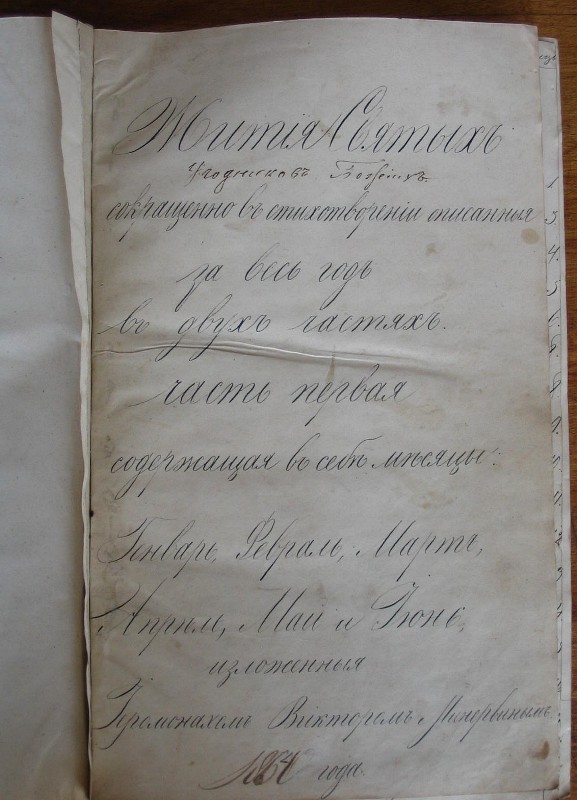 Житія Святыхъ
Угодниковъ Божіихъ.
сокращенно въ стихотвореніи описанныя
за весь годъ
въ двухъ частяхъ.
часть первая
содержащая въ себѣ мѣсяцы:
Генварь, Февраль, Мартъ,
Апрѣль, Май и Іюнь,
изложенныя
Іеромонахомъ Викторомъ Минервинымъ
года.